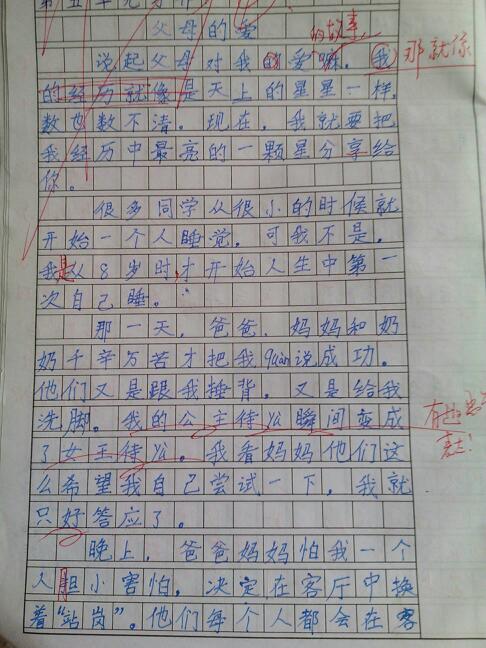 父母的爱
的故事
说起父母对我的爱嘛。我 那就像
的经历就像是天上的星星一样,
数也数不清。现在,我就要把
我经历中最亮的一颗星分享给
你。
很多同学从很小的时候就
开始一个人睡觉。可我不是。
我是从8岁时,才开始人生中第一
次自己睡。
那一天,爸爸、妈妈和奶
奶千辛万苦才把我quàn说成功。
他们又是跟我捶背。又是给我
洗脚。我的公主待以瞬间变成
了女王待以。我看妈妈他们这
么希望我自己尝试一下,我就
只好答应了。
晚上,爸爸妈妈怕我一个
人胆小害怕,决定在客厅中换
着“站岗”。他们每个人都会在客